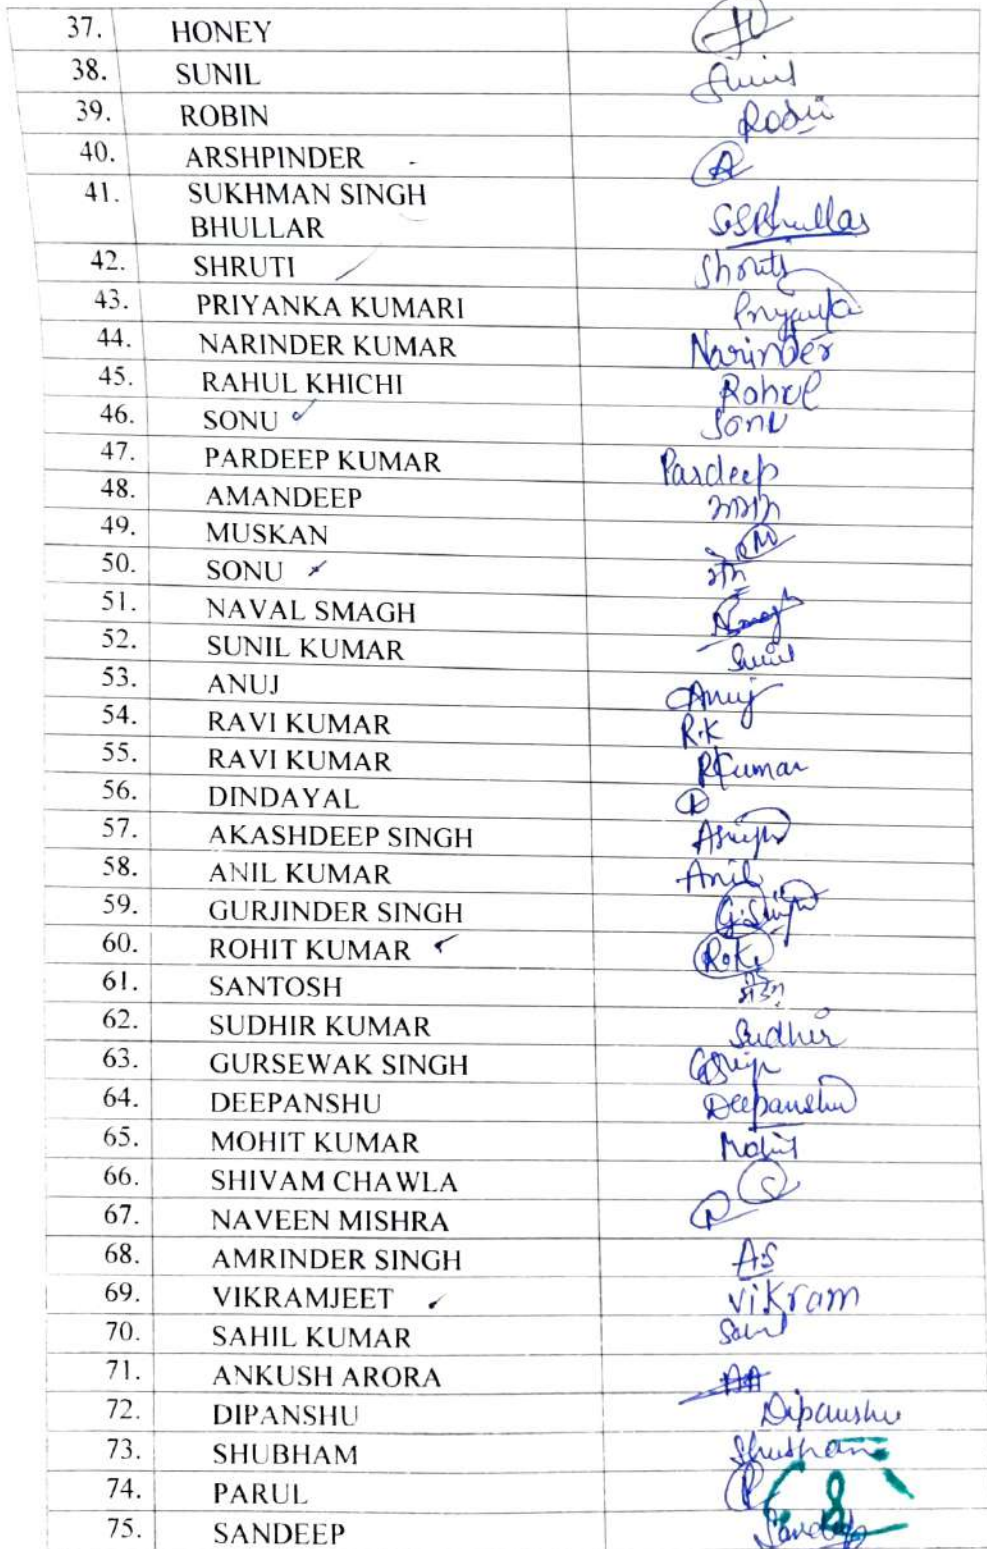 37. HONEY H
38. SUNIL Sunil
39. ROBIN Robin
40. ARSHPINDER A
41. SUKHMAN SINGH
BHULLAR SSBhullar
42. SHRUTI Shruti
43. PRIYANKA KUMARI Priyanka
44. NARINDER KUMAR Narinder
45. RAHUL KHICHI Rahul
46. SONU Sonu
47. PARDEEP KUMAR Pardeep
48. AMANDEEP
49. MUSKAN M
50. SONU
51. NAVAL SMAGH NSmagh
52. SUNIL KUMAR Sunil
53. ANUJ Anuj
54. RAVI KUMAR R.K
55. RAVI KUMAR RKumar
56. DINDAYAL
57. AKASHDEEP SINGH ASingh
58. ANIL KUMAR Anil
59. GURJINDER SINGH G.Singh
60. ROHIT KUMAR
61. SANTOSH
62. SUDHIR KUMAR Sudhir
63. GURSEWAK SINGH
64. DEEPANSHU Deepanshu
65. MOHIT KUMAR Mohit
66. SHIVAM CHAWLA S
67. NAVEEN MISHRA
68. AMRINDER SINGH AS
69. VIKRAMJEET Vikram
70. SAHIL KUMAR Sahil
71. ANKUSH ARORA AA
72. DIPANSHU Dipanshu
73. SHUBHAM Shubham
74. PARUL P
75. SANDEEP Sandeep